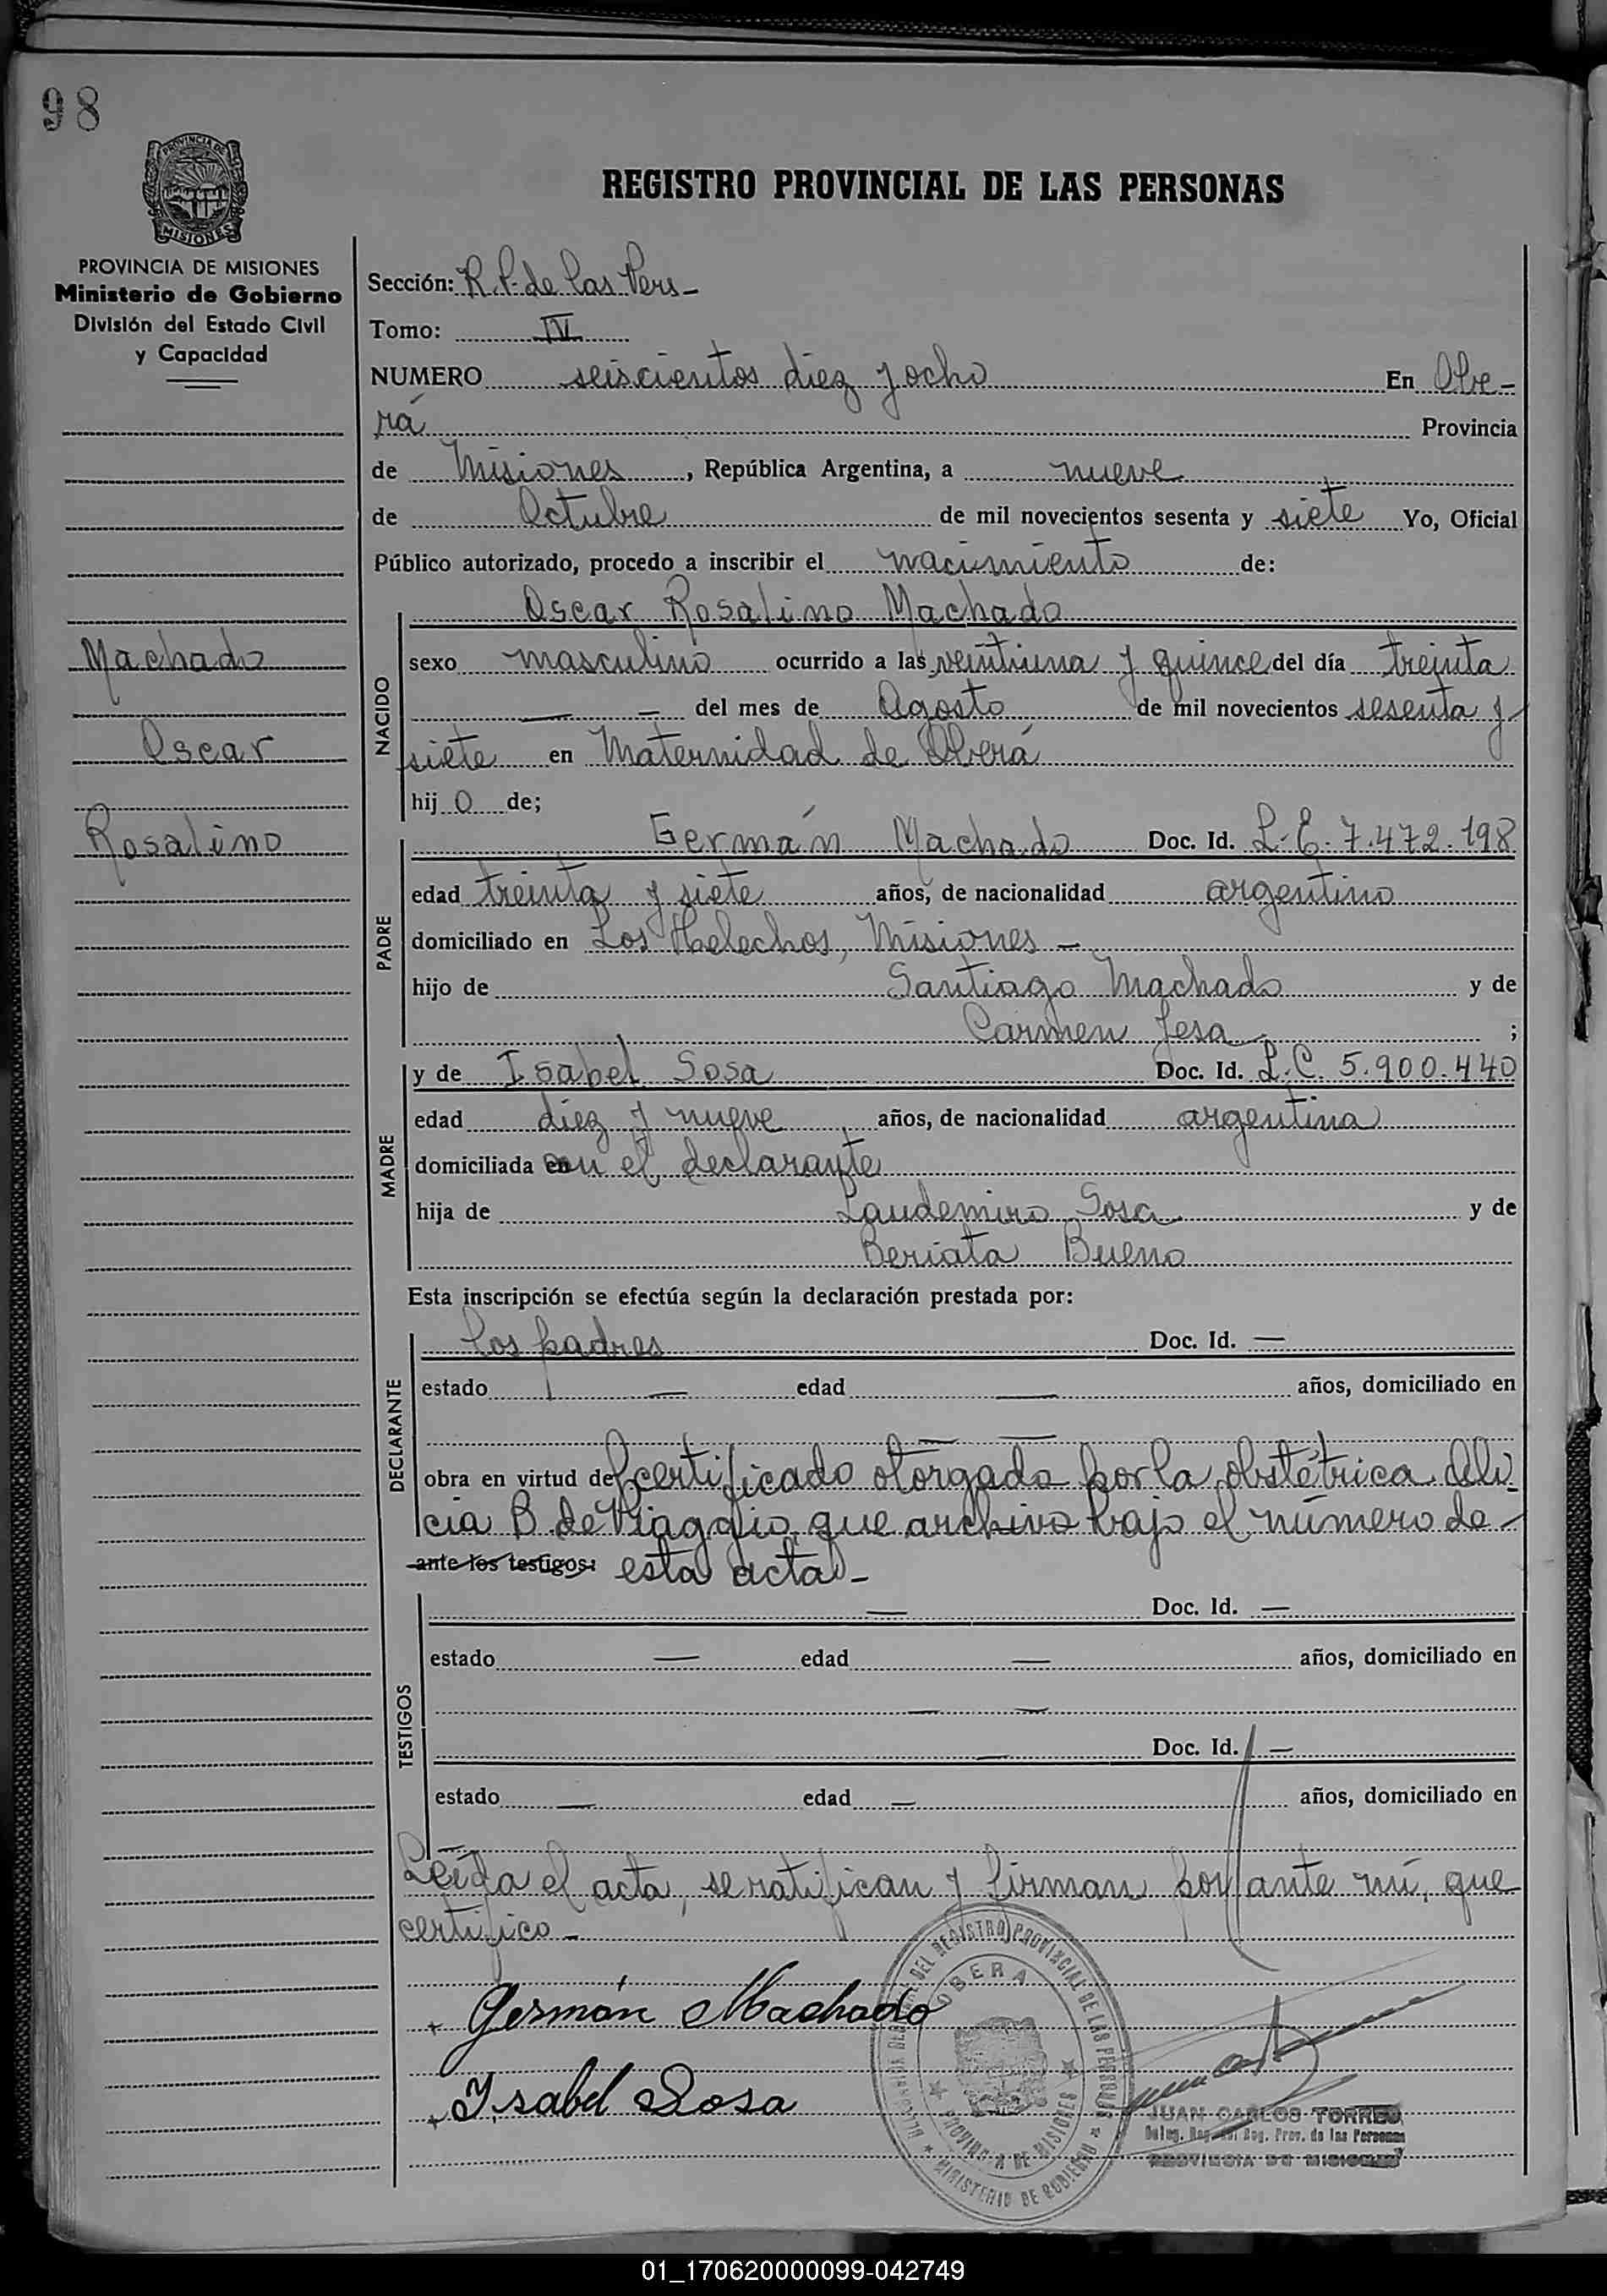 98
PROVINCIA DE
MISIONES
PROVINCIA DE MISIONES
Ministerio de Gobierno
División del Estado Civil
y Capacidad
Machado
Oscar
Rosalino
REGISTRO PROVINCIAL DE LAS PERSONAS
Sección: R. P. de las Pers-
Tomo: IV
NUMERO seiscientos diez y ocho En Obe-
rá Provincia
de Misiones, República Argentina, a nueve
de Octubre de mil novecientos sesenta y siete Yo, Oficial
Público autorizado, procedo a inscribir el nacimiento de:
NACIDO
Oscar Rosalino Machado
sexo masculino ocurrido a las veintiuna y quince del día treinta
— — del mes de Agosto de mil novecientos sesenta y
siete en Maternidad de Oberá
hijo de;
PADRE
Germán Machado Doc. Id. L. E. 7.472.198
edad treinta y siete años, de nacionalidad argentino
domiciliado en Los Helechos, Misiones —
hijo de Santiago Machado y de
Carmen ;
MADRE
y de Isabel Sosa Doc. Id. L.C. 5.900.440
edad diez y nueve años, de nacionalidad argentina
domiciliada con el declarante
hija de Laudemiro Sosa y de
Beriata Bueno
Esta inscripción se efectúa según la declaración prestada por:
DECLARANTE
los padres Doc. Id. —
estado — edad — años, domiciliado en
— —
obra en virtud del certificado otorgado por la obstétrica Deli-
cia B. de Viaggio, que archivo bajo el número de
ante los testigos: esta acta -
TESTIGOS
— Doc. Id. —
estado — edad — años, domiciliado en
— —
— Doc. Id. —
estado — edad — años, domiciliado en
Leída el acta, se ratifican y firman por ante mí, que
certifico -
+ Germán Machado
+ Isabel Sosa
DEL REGISTRO PROVINCIAL DE LAS PERSONAS
OBERA
PROVINCIA DE MISIONES
MINISTERIO DE GOBIERNO
JUAN CARLOS TORRES
Reg. Prov. de las Personas
PROVINCIA DE MISIONES
01_170620000099-042749